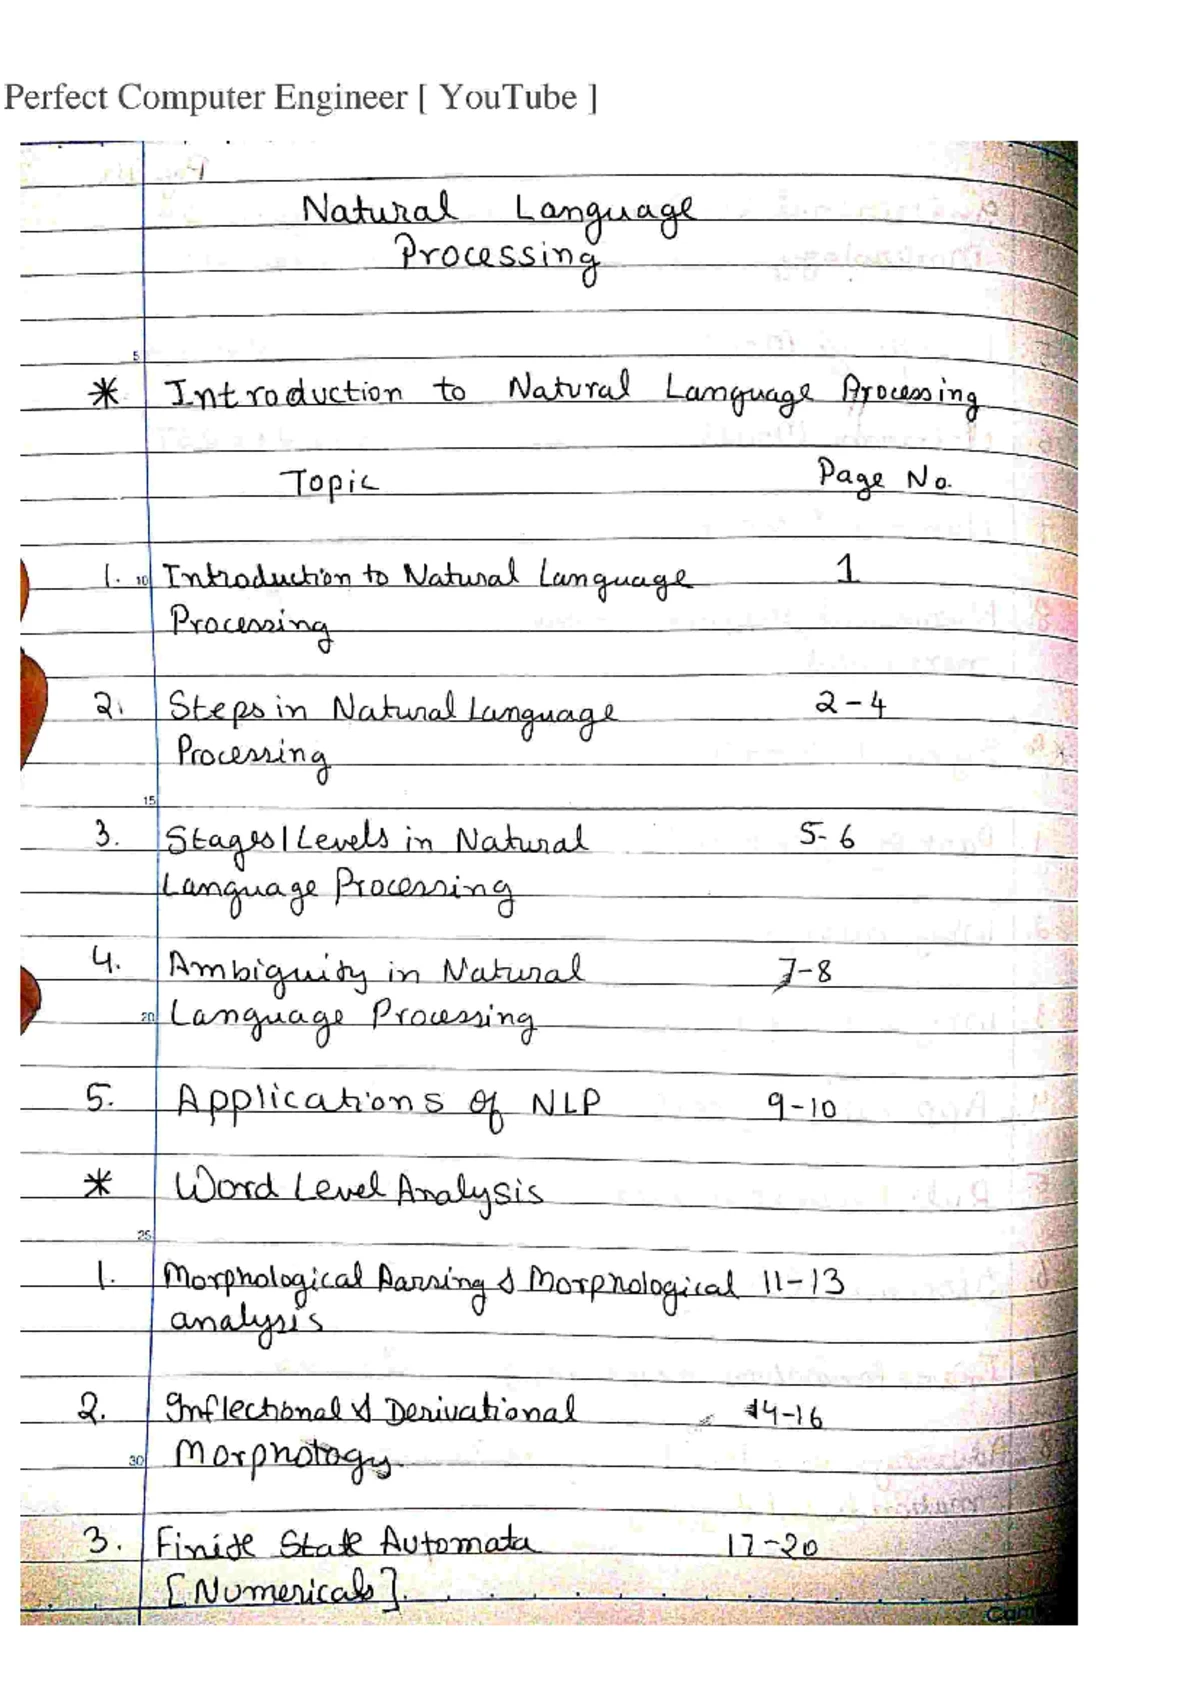 Perfect Computer Engineer [ YouTube ]
Natural Language
Processing
5
* Introduction to Natural Language Processing
Topic Page No.
1. 10 Introduction to Natural Language 1
Processing
2. Steps in Natural Language 2-4
Processing
15
3. Stages/Levels in Natural 5-6
Language Processing
4. Ambiguity in Natural 7-8
20 Language Processing
5. Applications of NLP 9-10
* Word Level Analysis
25
1. Morphological Parsing & Morphological 11-13
analysis
2. Inflectional & Derivational 14-16
30 Morphology
3. Finite State Automata 17-20
[Numericals].